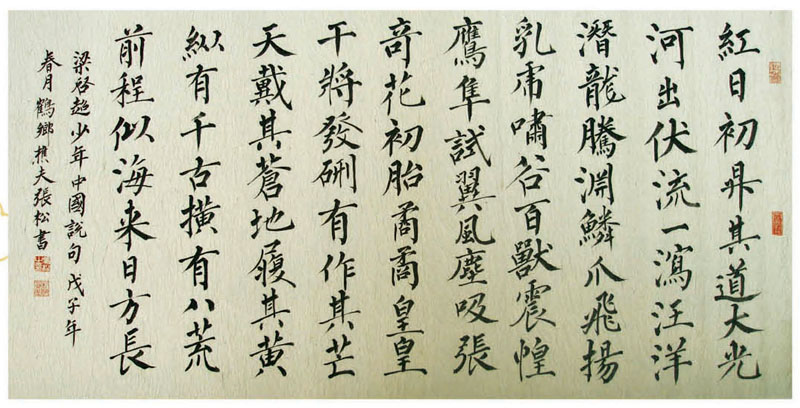 紅日初昇其道大光
河出伏流一瀉汪洋
潛龍騰淵鱗爪飛揚
乳虎嘯谷百獸震惶
鷹隼試翼風塵吸張
奇花初胎矞矞皇皇
干將發硎有作其芒
天戴其蒼地履其黃
纵有千古橫有八荒
前程似海来日方長
梁啓超少年中國説句戊子年
春月鶴鄉樵夫張松書